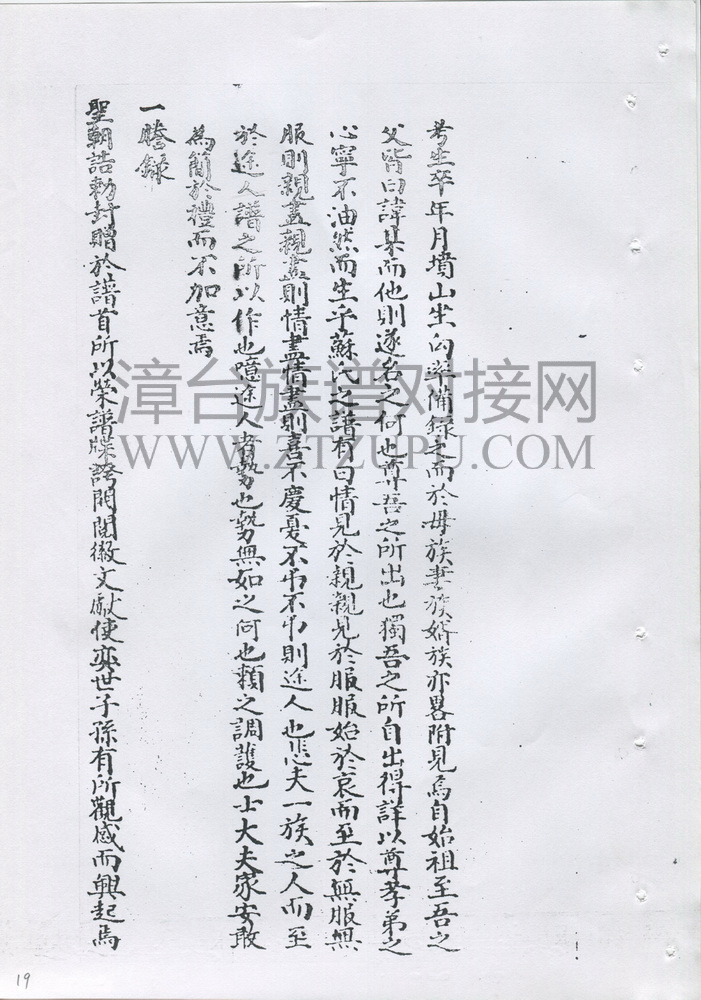 考生卒年月墳山坐向率備錄之而於母族妻族婿族亦畧附見焉自始祖至吾之
父皆曰諱某而他則遂名之何也尊吾之所出也獨吾之所自出得詳以尊孝弟之
心寧不油然而生乎蘇氏之譜有曰情見於親親見於服服始於衰而至於無服無
服則親盡親盡則情盡情盡則喜不慶憂不弔不弔則途人也悲夫一族之人而至
於途人譜之所以作也噫途人者勢也勢無如之何也賴之調護也士大夫家安敢
為簡於禮而不加意焉
一謄錄
聖朝誥勅封贈於譜首所以榮譜牒誇閥閱徵文獻使奕世子孫有所觀感而興起焉
漳台族谱对接网
WWW.ZTZUPU.COM
19